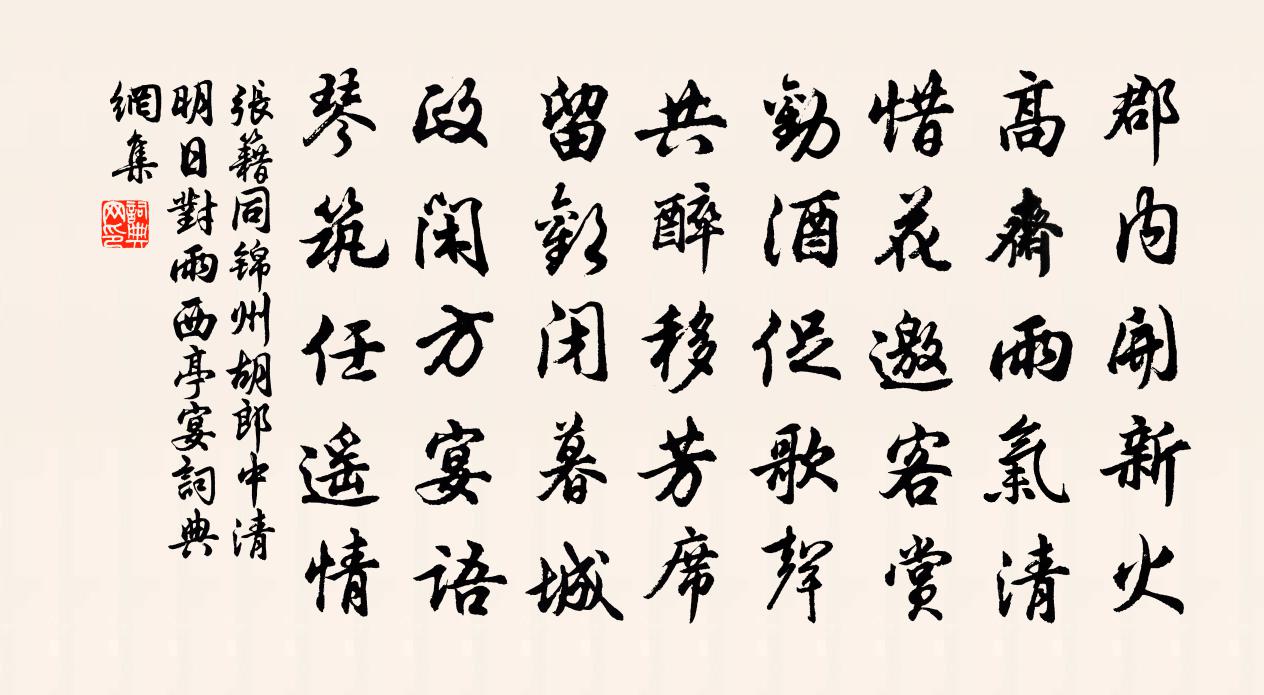 郡内開新火
高齋雨氣清
惜花邀客賞
勸酒促歌聲
共醉移芳席
留歡閉暮城
政閑方宴語
琴筑任遥情
張籍同锦州胡郎中清
明日對雨西亭宴詞典
網集
詞典網印